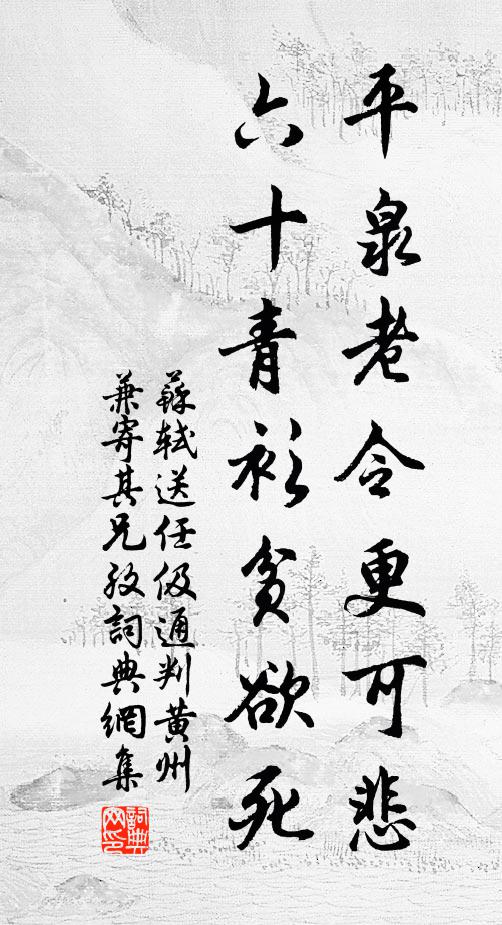 平泉老令更可悲
六十青衫貧欲死
蘇軾送任伋通判黃州
兼寄其兄孜詞典網集
詞典網印